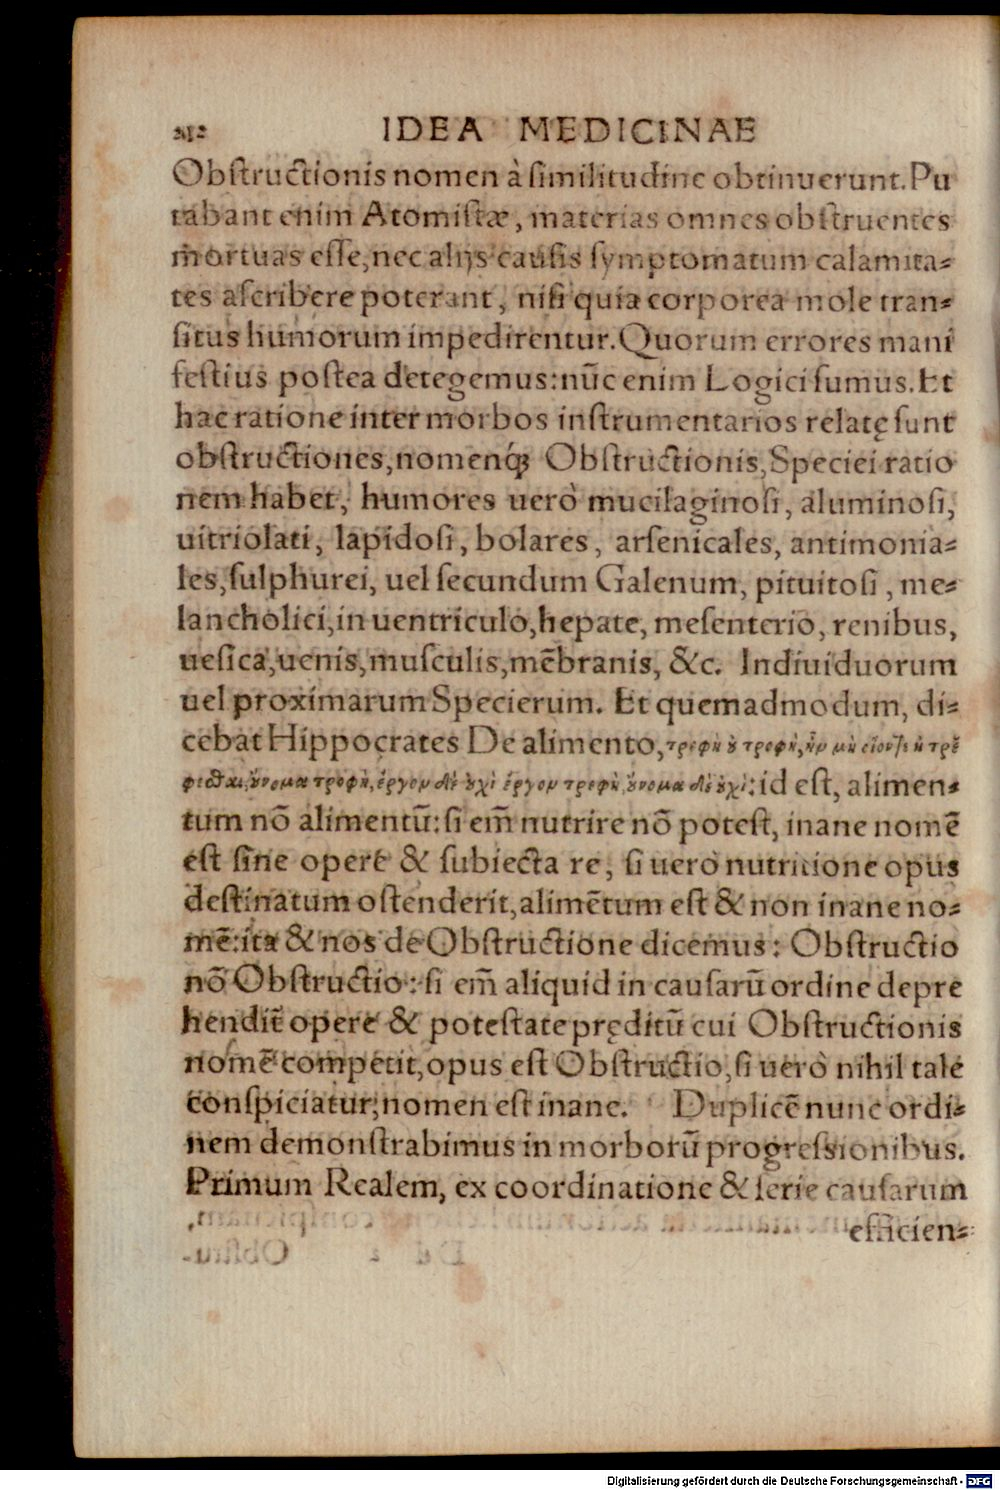 212 IDEA MEDICINAE
Obſtructionis nomen à ſimilitudine obtinuerunt. Pu
tabant enim Atomiſtæ, materias omnes obſtruentes
mortuas eſſe, nec alijs cauſis ſymptomatum calamita⸗
tes aſcribere poterant, niſi quia corporea mole tran⸗
ſitus humorum impedirentur. Quorum errores mani
feſtius poſtea detegemus: nũc enim Logici ſumus. Et
hac ratione inter morbos inſtrumentarios relatę ſunt
obſtructiones, nomenq́; Obſtructionis, Speciei ratio
nem habet, humores uerò mucilaginoſi, aluminoſi,
uitriolati, lapidoſi, bolares, arſenicales, antimonia⸗
les, ſulphurei, uel ſecundum Galenum, pituitoſi, me⸗
lancholici, in uentriculo, hepate, meſenterio, renibus,
ueſica, uenis, muſculis, mẽbranis, &c. Indiuiduorum
uel proximarum Specierum. Et quemadmodum, di⸗
cebat Hippocrates De alimento, τροφὴ ὀ τροφὴ, ἢν μὴ τρέ
φεσθαι, ὄνομα τροφὴ, ἔργον δὲ ὀχὶ ἔργον τροφὴ, ὄνομα δὲ ὀχὶ: id eſt, alimen⸗
tum nõ alimentũ: ſi em̃ nutrire nõ poteſt, inane nomẽ
eſt ſine opere & ſubiecta re, ſi uerò nutritione opus
deſtinatum oſtenderit, alimẽtum eſt & non inane no⸗
mẽ: ita & nos de Obſtructione dicemus: Obſtructio
nõ Obſtructio: ſi em̃ aliquid in cauſarũ ordine depre
hendit̃ opere & poteſtate pręditũ cui Obſtructionis
nomẽ competit, opus eſt Obſtructio, ſi uerò nihil tale
conſpiciatur, nomen eſt inane. Duplicẽ nunc ordi⸗
nem demonſtrabimus in morborũ progreſsionibus.
Primum Realem, ex coordinatione & ſerie cauſarum
efficien⸗
Digitalisierung gefördert durch die Deutsche Forschungsgemeinschaft - DFG